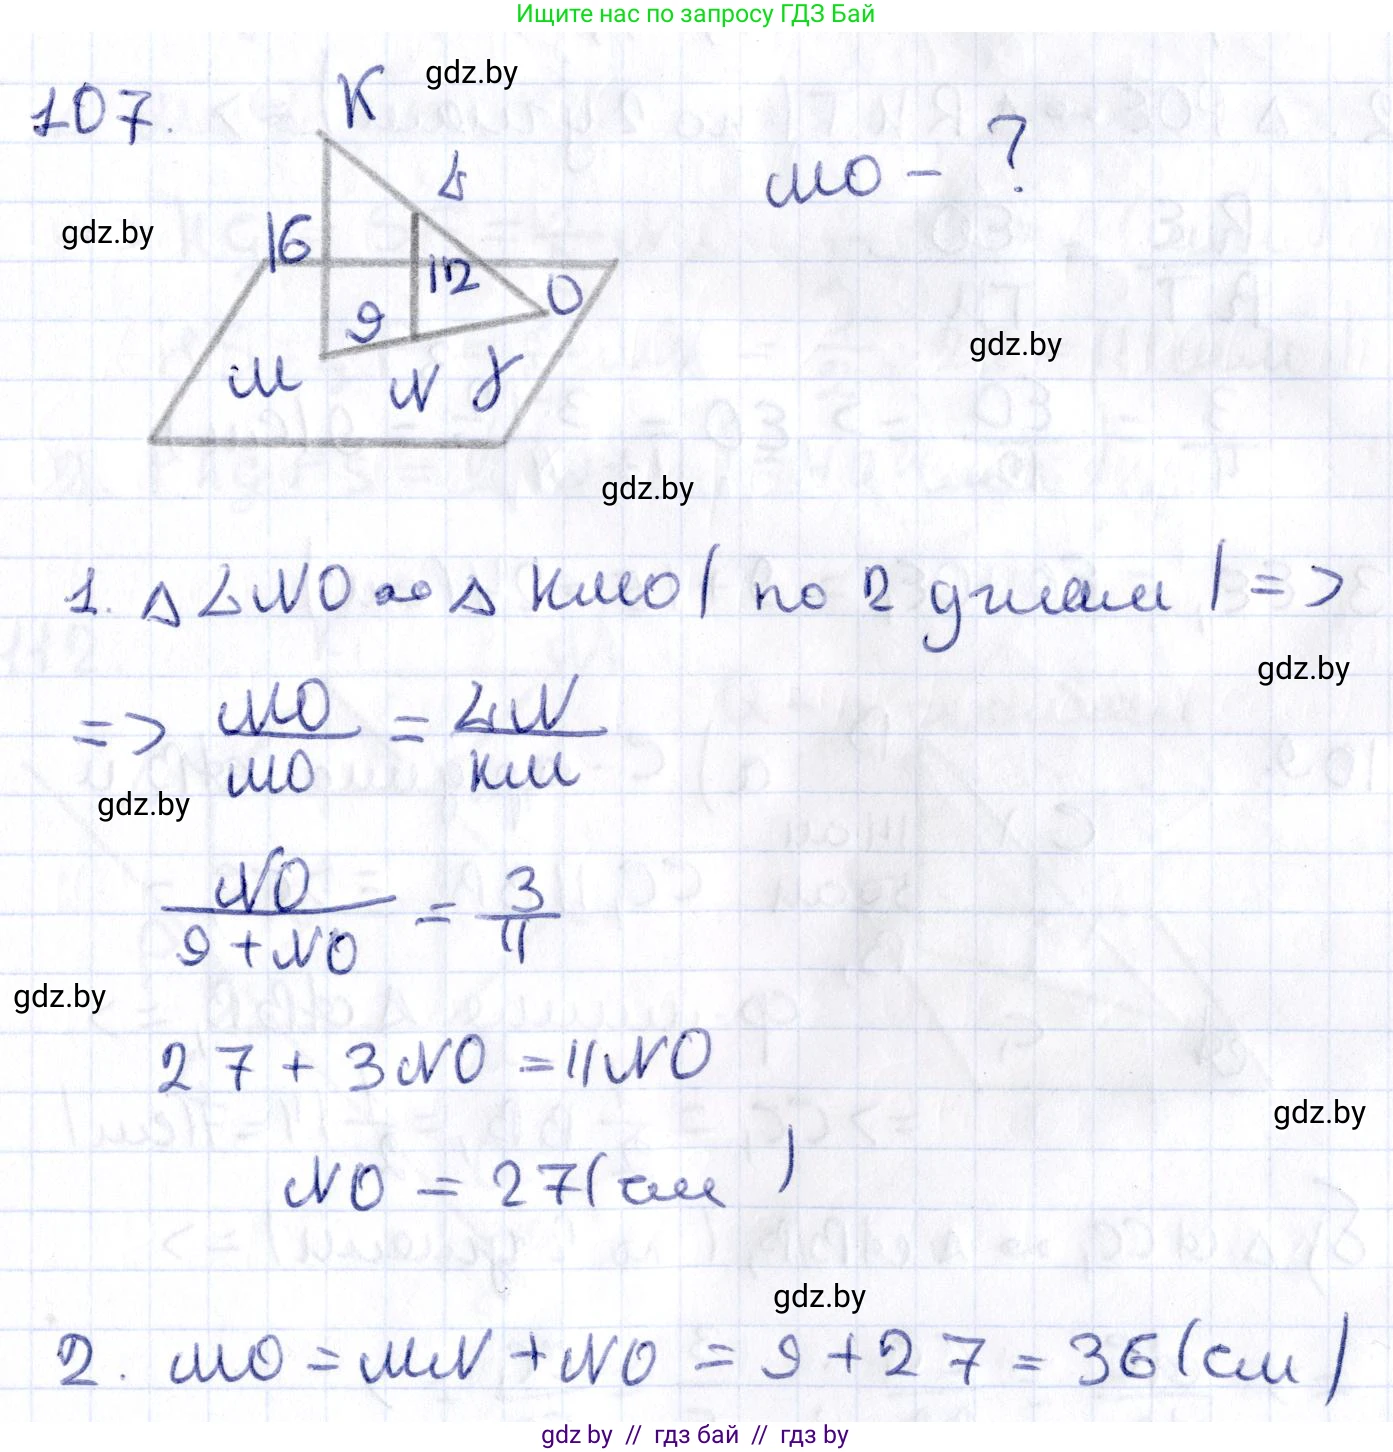 Ищите нас по запросу ГДЗ Бай
107.
K
gdz.by
L
MO - ?
gdz.by
16
12
O
9
gdz.by
M
N
γ
gdz.by
1. Δ LNO ∾ Δ KMO ( по 2 углам ) =>
gdz.by
=> NO/MO = LN/KM
gdz.by
NO/(9 + NO) = 3/4
gdz.by
27 + 3NO = 4NO
gdz.by
NO = 27 (см)
gdz.by
2. MO = MN + NO = 9 + 27 = 36 (см)
gdz.by // гдз бай // гдз by